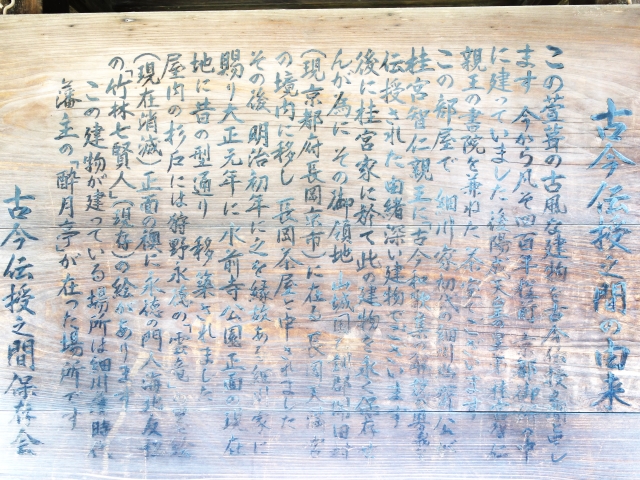 古今伝授之間の由来
この萱葺の古風な建物を古今伝授之間と申し
ます 今から凡そ四百年 京都御所の中
に建っていました 後陽成天皇
親王の書院を兼ねた 茶室でございます
この部屋で 細川家初代 細川幽斎公が
桂宮智仁親王に古今和歌集の解釈の奥義を
伝授された由緒深い建物でございます
後に桂宮家に於て此の建物を永く保存
んが為に その御領地 山城国
(現京都府長岡京市)に在る 長岡天満宮
の境内に移し 長岡茶屋と申されました
その後 明治初年に之を縁故ある細川家に
賜り 大正元年に水前寺公園正面の現在
地に昔の型通り 移築されました
屋内の杉戸には狩野永徳の「雲竜」
(現在消滅) 正面の襖に 永徳の門人海北友松
の「竹林七賢人」(現存)の絵があります
この建物が建っている場所は細川 時代
藩主の「酔月亭」が在った場所です
古今伝授之間保存会